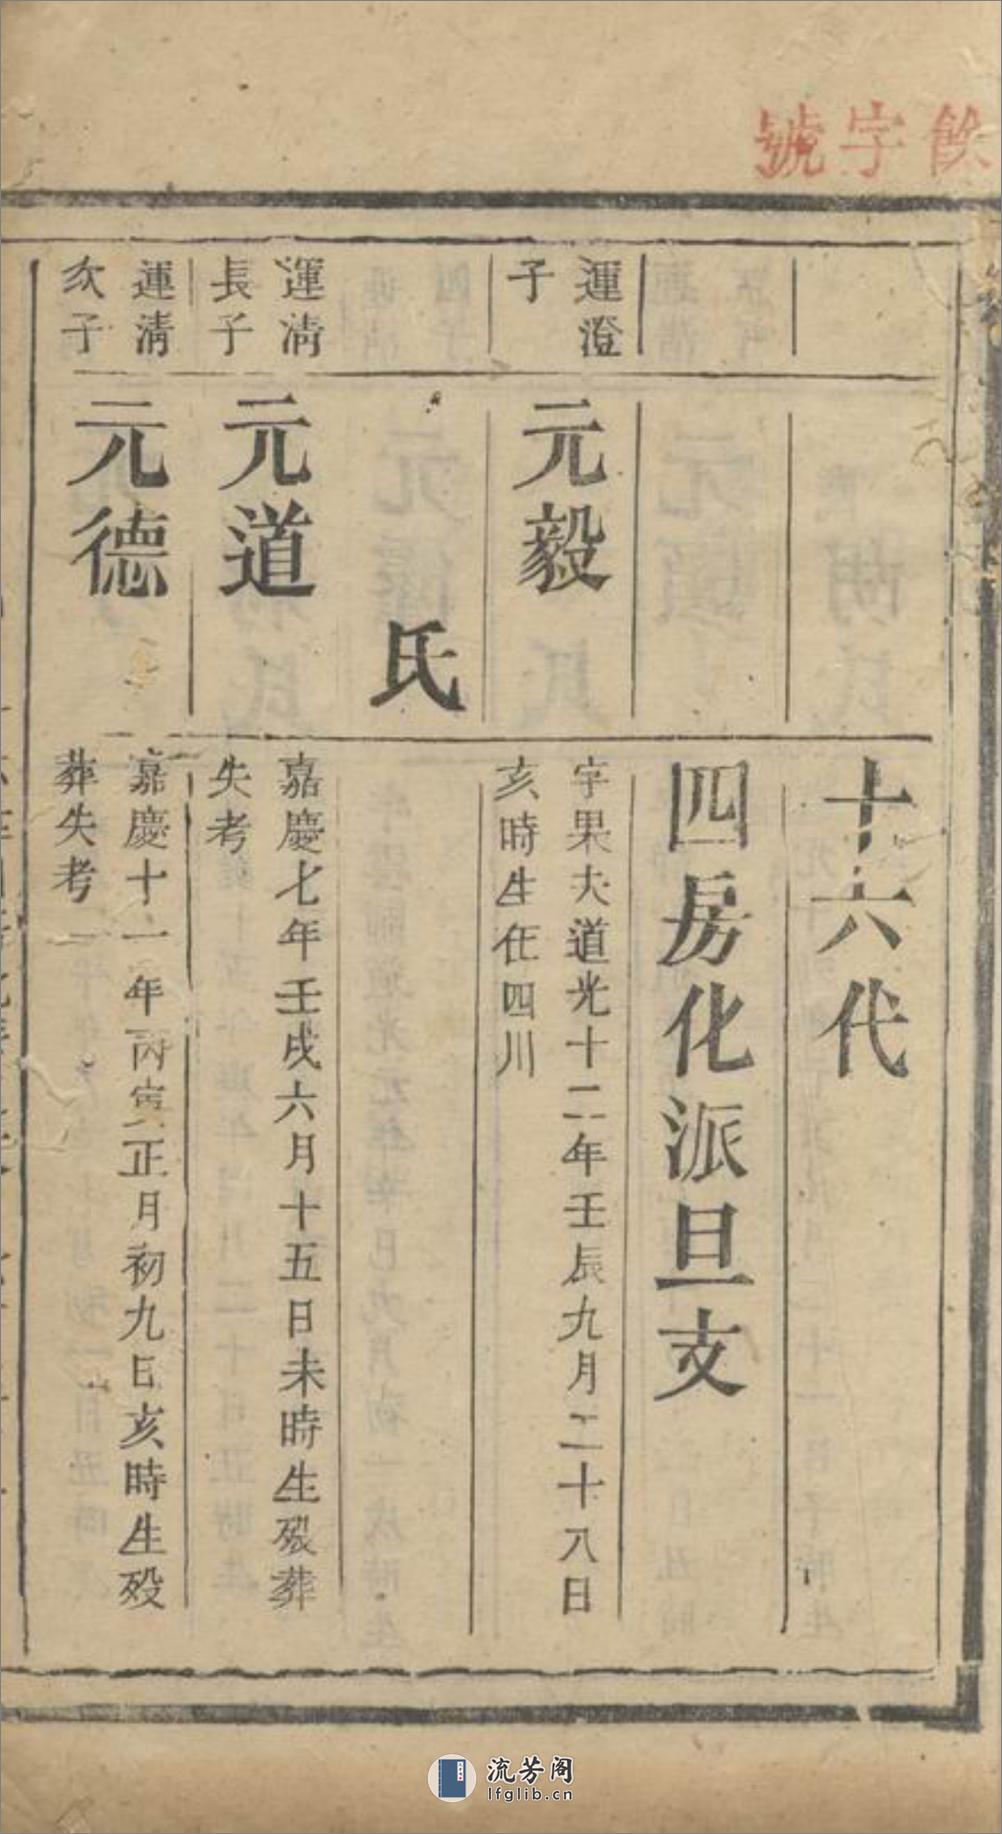 字號
十六代
四房化派旦支
運澄
子
元毅
字果夫道光十二年壬辰九月二十八日
亥時生在四川
氏
運清
長子
元道
嘉慶七年壬戌六月十五日未時生歿葬
失考
運清
次子
元德
嘉慶十一年丙寅正月初九日亥時生歿
葬失考
流芳阁
lfglib.cn